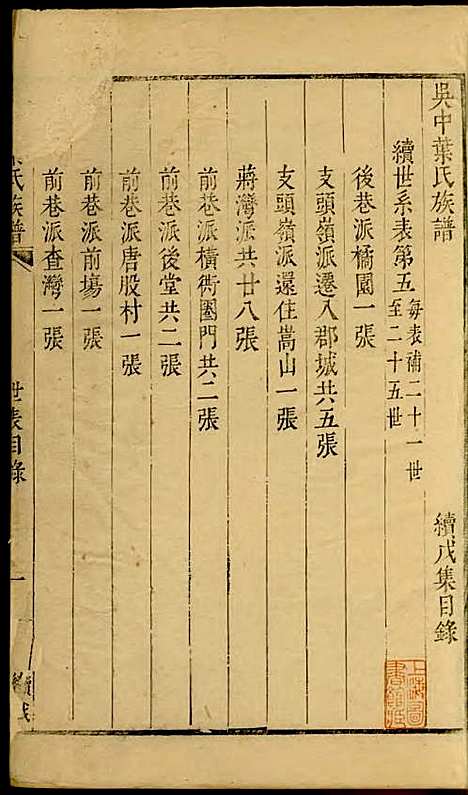 吳中葉氏族譜 續戊集目錄
續世系表第五 每表補二十一世至二十五世
後巷派橘園一張
支頭嶺派遷入郡城共五張
支頭嶺派還住嵩山一張
蔣灣派共廿八張
前巷派橫街圈門共二張
前巷派後堂共二張
前巷派唐股村一張
前巷派前場一張
前巷派查灣一張
氏族譜 世表目錄 一 續戊
上海圖書館藏